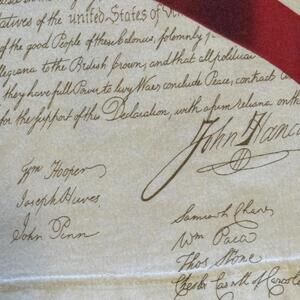 tatives of the united States of
of the good People of these Colonies, solemnly p
llegiance to the British Crown, and that all political
they have full Power to levy War, conclude Peace, contract
for the support of this Declaration, with a firm reliance on th
John Hanco
Wm Hooper
Joseph Hewes,
John Penn
Samuel Chase
Wm Paca
Thos Stone
Charles Carroll of Carrol